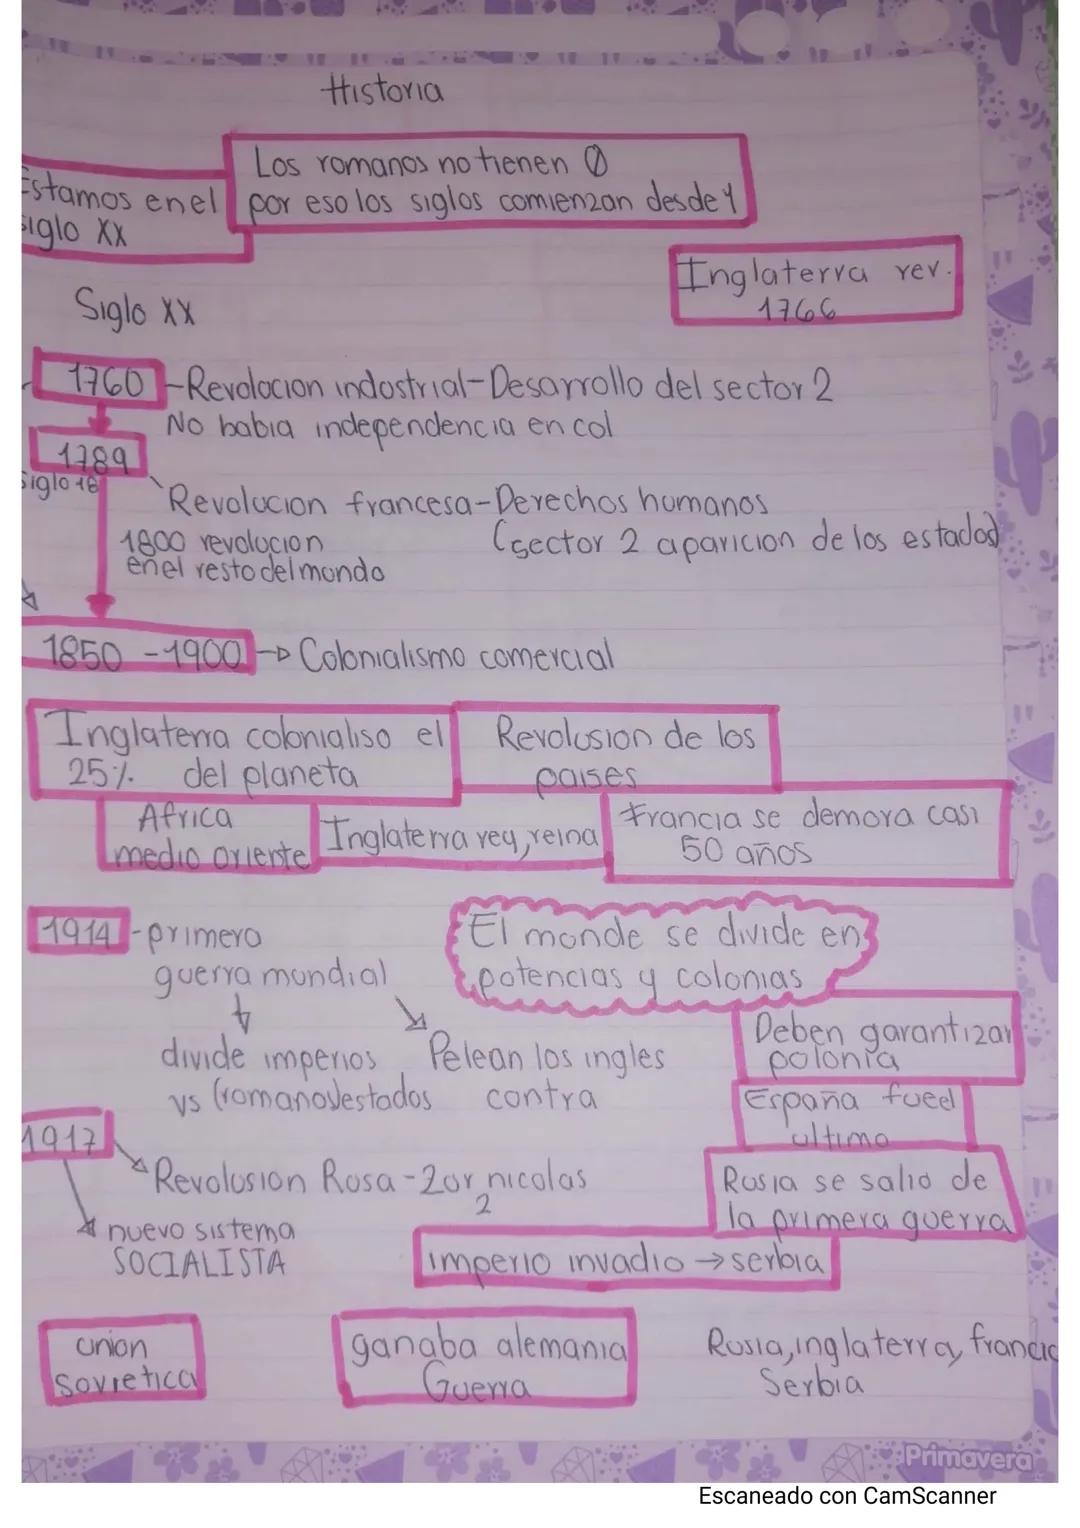 Historia
Los romanos no tienen 0
por eso los siglos comienzan desde 1
Estamos en el
siglo XX
Inglaterra rev.
1766
Siglo XX
1760 -Revolucion industrial-Desarrollo del sector 2
No habia independencia en col
1789
siglo 18
Revolucion francesa-Derechos humanos
(sector 2 aparicion de los estados)
1800 revolucion
en el resto del mundo
1850 -1900 → Colonialismo comercial
Inglaterra colonialiso el
25% del planeta
Revolusion de los
paises
Africa
medio oriente
Inglaterra rey, reina
Francia se demora casi
50 años
1914 -primera
guerra mundial
El mundo se divide en
potencias y colonias
divide imperios
vs (romano) estados
Pelean los ingles
contra
Deben garantizar
polonia
España fue el
ultimo
1917
Revolusion Rusa-Zar nicolas
2
nuevo sistema
SOCIALISTA
Rusia se salio de
la primera guerra
imperio invadio → serbia
union
sovietica
ganaba alemania
Guerra
Rusia, inglaterra, francia
Serbia
Primavera
Escaneado con CamScanner